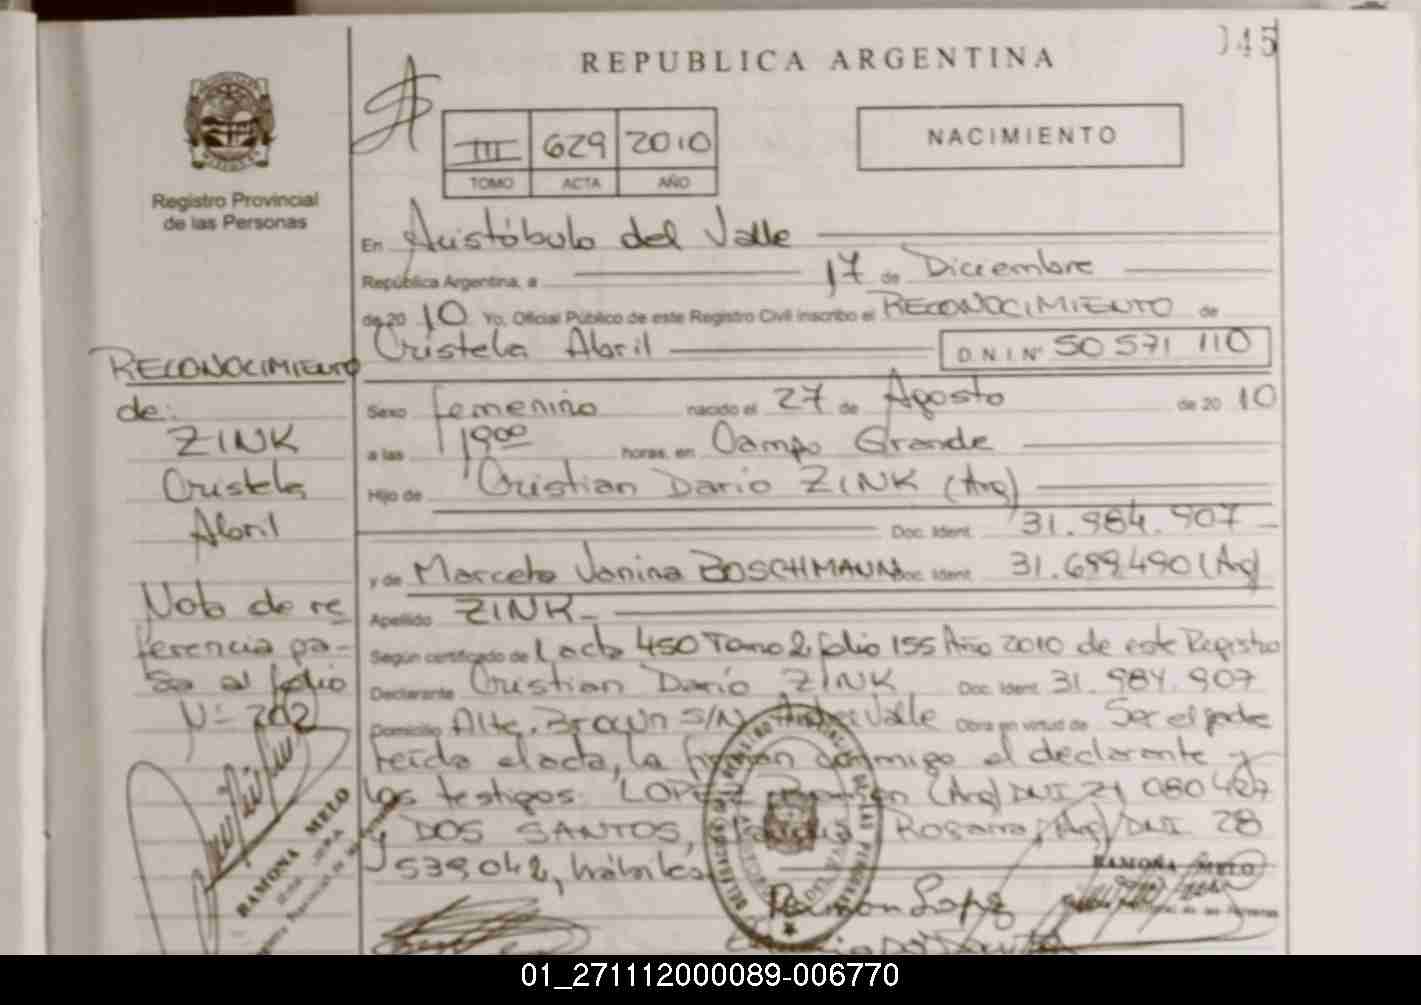 045
REPUBLICA ARGENTINA
III 629 2010
TOMO ACTA AÑO
NACIMIENTO
Registro Provincial
de las Personas
En Aristóbulo del Valle
República Argentina, a 17 de Diciembre
de 20 10 Yo, Oficial Público de este Registro Civil inscribo el RECONOCIMIENTO de
Cristela Abril D.N.I Nº 50 571 110
Sexo femenino nacido el 27 de Agosto de 20 10
a las 19 00 horas, en Campo Grande
Hijo de Cristian Dario ZINK (Arg)
Doc. Ident. 31.984.907
y de Marcela Yanina BOSCHMANN Doc. Ident. 31.699.490 (Arg)
Apellido ZINK
Según certificado de acta 450 Tomo 2 folio 155 Año 2010 de este Registro
Declarante Cristian Dario ZINK Doc. Ident. 31.984.907
Domicilio Alte. Brown S/N Valle Obra en virtud de Ser el padre
leída el acta, la firman conmigo el declarante y
los testigos: LOPEZ Ramón (Arg) DNI 21 080 427
y DOS SANTOS, Rosana (Arg) DNI 28
539 042, hábiles
Ramón Lopez
RAMONA MELO
RECONOCIMIENTO
de:
ZINK
Cristela
Abril
Nota de re
ferencia pa-
sa al folio
Nº 202
RAMONA MELO
01_271112000089-006770